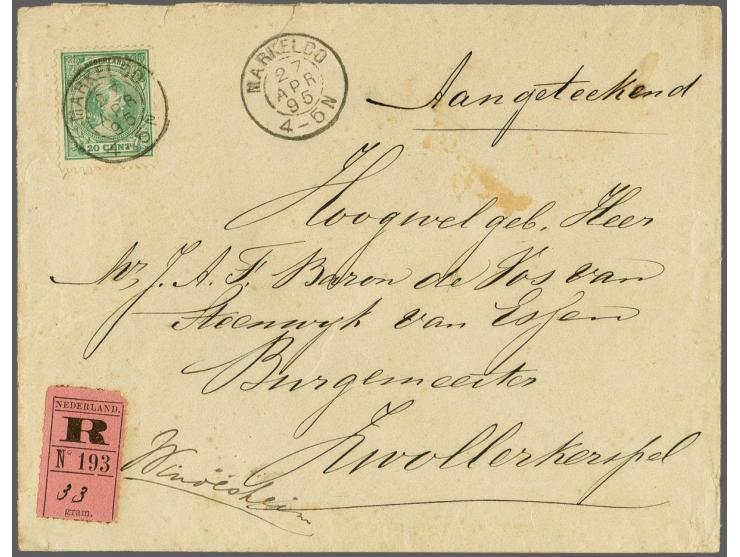 NEDERLAND
20 CENT
MARKELOO
APR
95
MARKELOO
27
APR
95
4-5N
Aangeteekend
Hoogwelgeb. Heer
Mr J. A. F. Baron de Vos van
Steenwyk van Essen
Burgemeester
Zwollerkerspel
Windesheim
NEDERLAND.
R
No 193
33
gram.